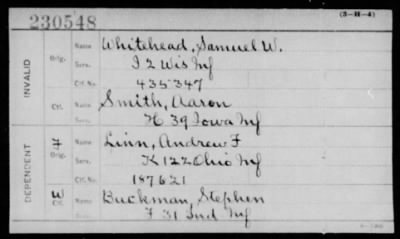 230548
(3-H-4)
INVALID
Orig. Name Whitehead, Samuel W.
Serv. I 2 Wis Inf
Ctf. No. 435347
Ctf. Name Smith, Aaron
Serv. H 39 Iowa Inf
DEPENDENT
F Orig. Name Linn, Andrew F
Serv. K 122 Ohio Inf
Ctf. No. 187621
W Ctf. Name Buckman, Stephen
Serv. F 31 Ind Inf